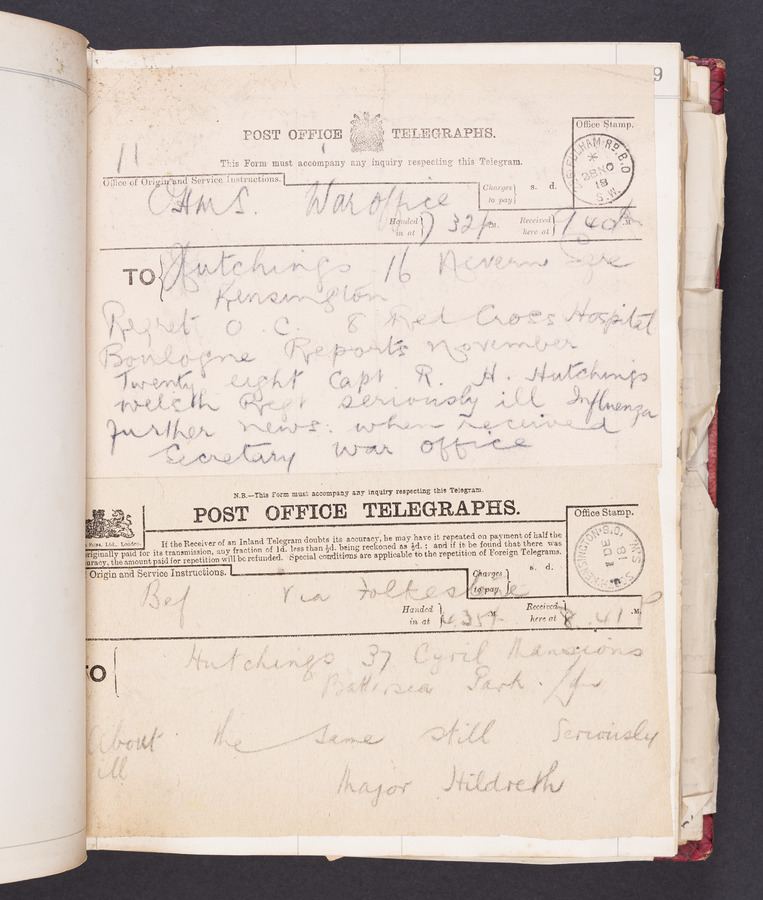 9
POST OFFICE TELEGRAPHS.
Office Stamp.
11
This Form must accompany any inquiry respecting this Telegram.
FULHAM RD. B.O
28 NO
18
S.W.
Office of Origin and Service Instructions.
Charges to pay
s. d.
OHMS. War office
Handed in at
32
M.
Received here at
40
M.
TO Hutchings 16 Nevern Sqre
Kensington
Regret O. C. 8 Red Cross Hospital
Boulogne Reports November
Twenty eight Capt R. H. Hutchings
welsh Regt seriously ill Influenza
further news. when received
Secretary war office
N.B.—This Form must accompany any inquiry respecting this Telegram.
POST OFFICE TELEGRAPHS.
Office Stamp.
Sons, Ltd., London.
If the Receiver of an Inland Telegram doubts its accuracy, he may have it repeated on payment of half the
originally paid for its transmission, any fraction of 1d. less than ½d. being reckoned as ½d.; and if it be found that there was
uracy, the amount paid for repetition will be refunded. Special conditions are applicable to the repetition of Foreign Telegrams.
KENSINGTON B.O.
18
S.W.
Origin and Service Instructions.
Charges to pay
s. d.
Bef Via Folkestone
Handed in at
4.35
M.
Received here at
8.41
M.
TO Hutchings 37 Cyril Mansions
Battersea Park.
About the same still Seriously
ill
Major Hildreth